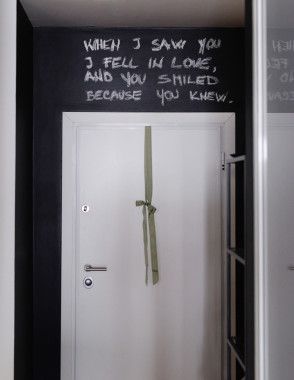 WHEN I SAW YOU
I FELL IN LOVE,
AND YOU SMILED
BECAUSE YOU KNEW.